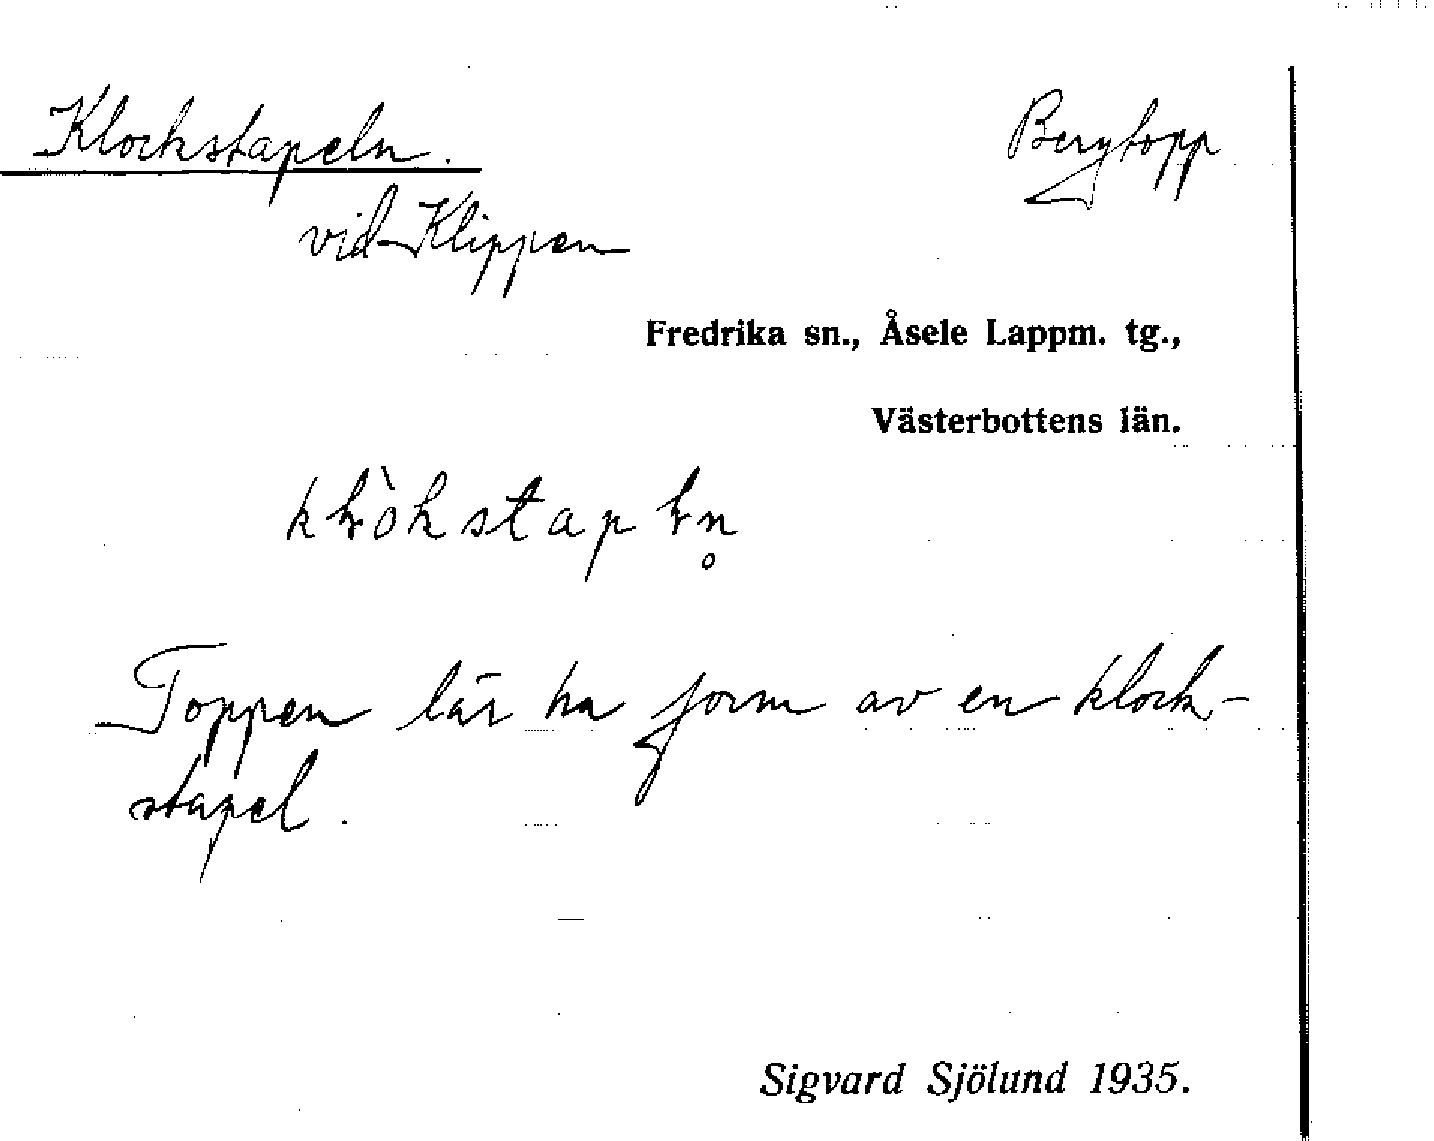 Klockstapeln. Bergtopp
vid Klippen
Fredrika sn., Åsele Lappm. tg.,
Västerbottens län.
Toppen lär ha form av en klock-
stapel.
Sigvard Sjölund 1935.